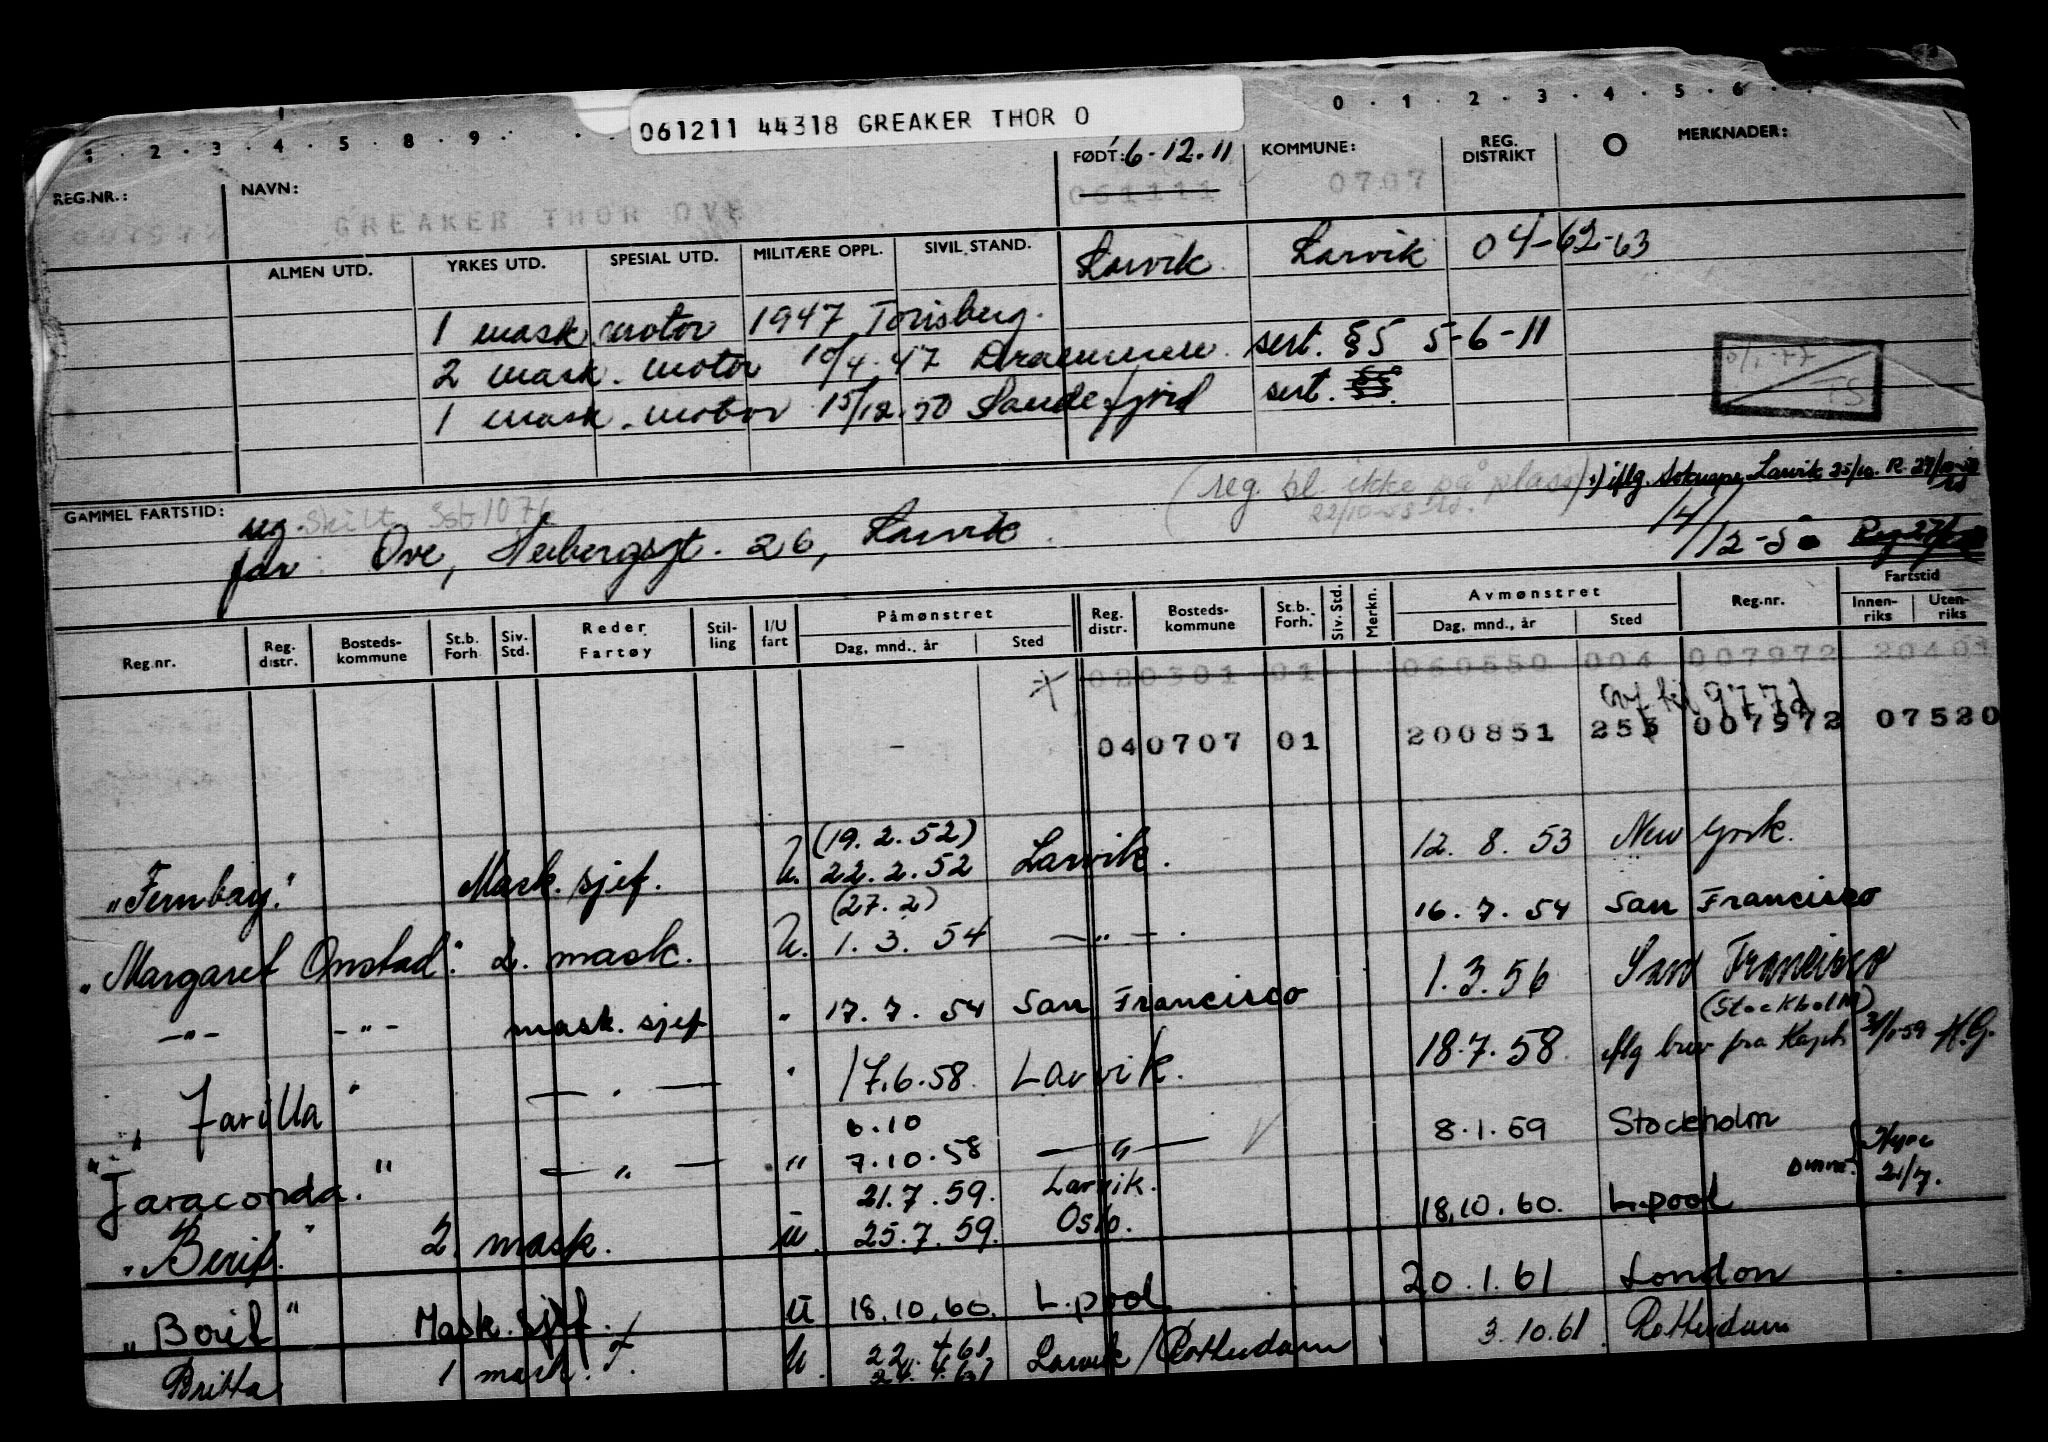 061211 44318 GREAKER THOR O
0 · 1 · 2 · 3 · 4 · 5 · 6
1 · 2 · 3 · 4 · 5 · 8 · 9
REG.NR.: NAVN: FØDT: 6-12.11 KOMMUNE: REG. DISTRIKT MERKNADER:
007972 GREAKER THOR OVE 061111 0707
ALMEN UTD. YRKES UTD. SPESIAL UTD. MILITÆRE OPPL. SIVIL STAND. Larvik Larvik 04-62-63
1 mask. motor 1947 Tønsberg.
2 mask. motor 10/4.47 Drammen. sert. §5 5-6-11
1 mask. motor 15/12.50 Sandefjord sert. §5.
(reg. bl. ikke på plass)
GAMMEL FARTSTID: reg. skilt
14/12-50
far: Ove, Larvik.
Reg.nr. Reg. distr. Bosteds-kommune St.b. Forh Siv. Std. Reder Fartøy Stilling I/U fart Påmønstret Dag, mnd., år Sted Reg. distr. Bosteds-kommune St.b. Forh. Siv. Std. Merkn. Avmønstret Dag, mnd., år Sted Reg.nr. Fartstid Innen-riks Uten-riks
020301 01 060550 004 007972
040707 01 200851 255 007972 07520
(19.2.52)
"Fernbay." Mask. sjef. U. 22.2.52 Larvik. 12. 8. 53 New York.
(27.2)
"Margaret Onstad". 2. mask. U. 1. 3. 54 — " — . 16. 7. 54 San Francisco
— " — — " — mask. sjef " 17. 7. 54 San Francisco 1.3.56 San Francisco
(Stockholm)
" Jarilla " — " — " 17.6.58. Larvik. 18.7.58. iflg brev fra H.G.
6.10
"Jaraconda." — " — " 7.10.58 — " — 8.1.59 Stockholm
21.7.59. Larvik.
"Berit." 2. mask. U. 25.7.59. Oslo. 18.10.60. L.pool
21/7.
"Berit" Mask. sjef. U 18.10.60. L.pool 20.1.61 London
22.4.61
Britta 1 mask. U. 24.4.61 Larvik/Rotterdam 3.10.61. Rotterdam